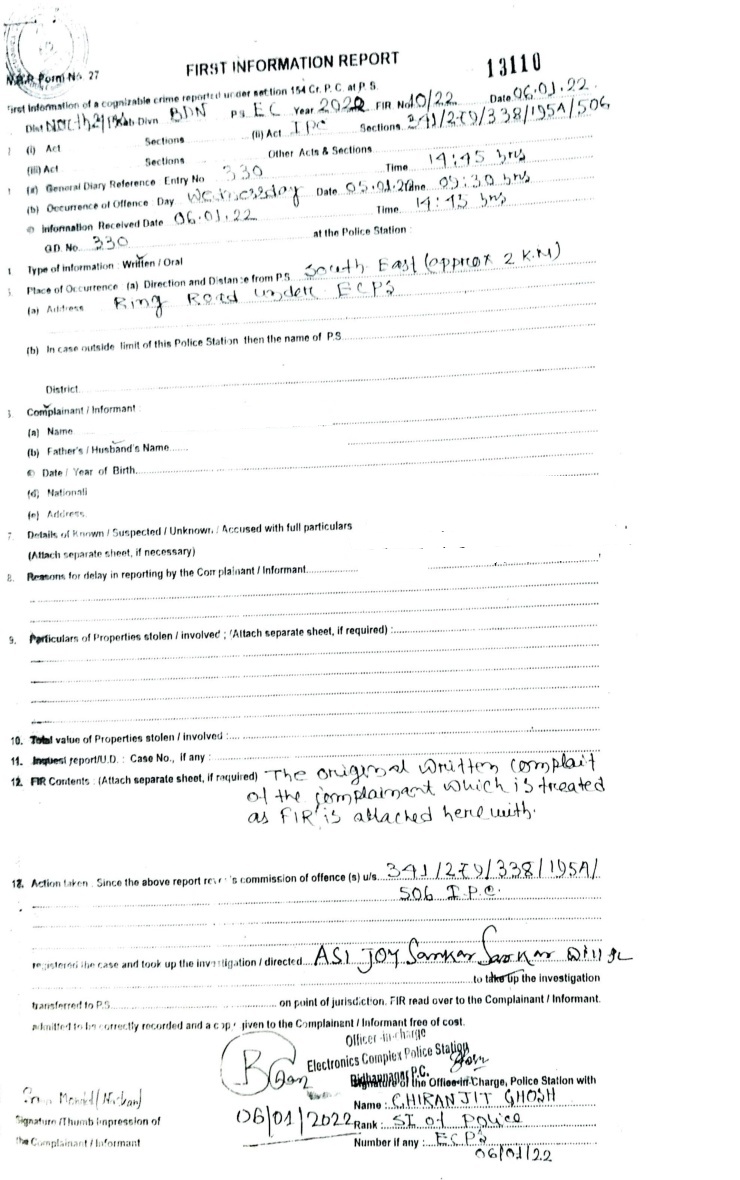 N.B.P. Form No. 27
FIRST INFORMATION REPORT
13110
First Information of a cognizable crime reported under section 154 Cr. P. C. at P. S.
Dist North 24 Pgs Sub Divn BDN P.S. EC Year 2022 FIR No 10/22 Date 06.01.22
1 (i) Act Sections (ii) Act IPC Sections 341/279/338/195A/506
(iii) Act Sections Other Acts & Sections
(a) General Diary Reference Entry No 330 Time 14:45 hrs
(b) Occurrence of Offence Day Wednesday Date 05.01.22 Time 09:30 hrs
© Information Received Date 06.01.22 Time 14:45 hrs
G.D. No. 330 at the Police Station :
Type of information : Written / Oral
Place of Occurrence (a) Direction and Distance from P.S. South East (approx 2 K.M)
(a) Address Ring Road under ECPS
(b) In case outside limit of this Police Station then the name of P.S.
District
Complainant / Informant
(a) Name
(b) Father's / Husband's Name
© Date / Year of Birth
(d) Nationali
(e) Address
7. Details of Known / Suspected / Unknown / Accused with full particulars
(Attach separate sheet, if necessary)
8. Reasons for delay in reporting by the Complainant / Informant
9. Particulars of Properties stolen / involved ; (Attach separate sheet, if required) :
10. Total value of Properties stolen / involved :
11. Inquest report/U.D. : Case No., if any :
12. FIR Contents : (Attach separate sheet, if required) The original written complait
of the complainant which is treated
as FIR is attached here with.
13. Action taken : Since the above report commission of offence (s) u/s. 341/279/338/195A/
506 I.P.C.
registered the case and took up the investigation / directed ASI Joy Sankar Sarkar
to take up the investigation
transferred to P.S. on point of jurisdiction. FIR read over to the Complainant / Informant.
admitted to be correctly recorded and a copy given to the Complainant / Informant free of cost.
Officer-in-charge
Electronics Complex Police Station
Bidhannagar P.C.
Signature of the Officer-in-Charge, Police Station with
Name : CHIRANJIT GHOSH
Signature /Thumb Impression of 06/01/2022 Rank : SI of Police
the Complainant / Informant Number if any : ECPS
06/01/22